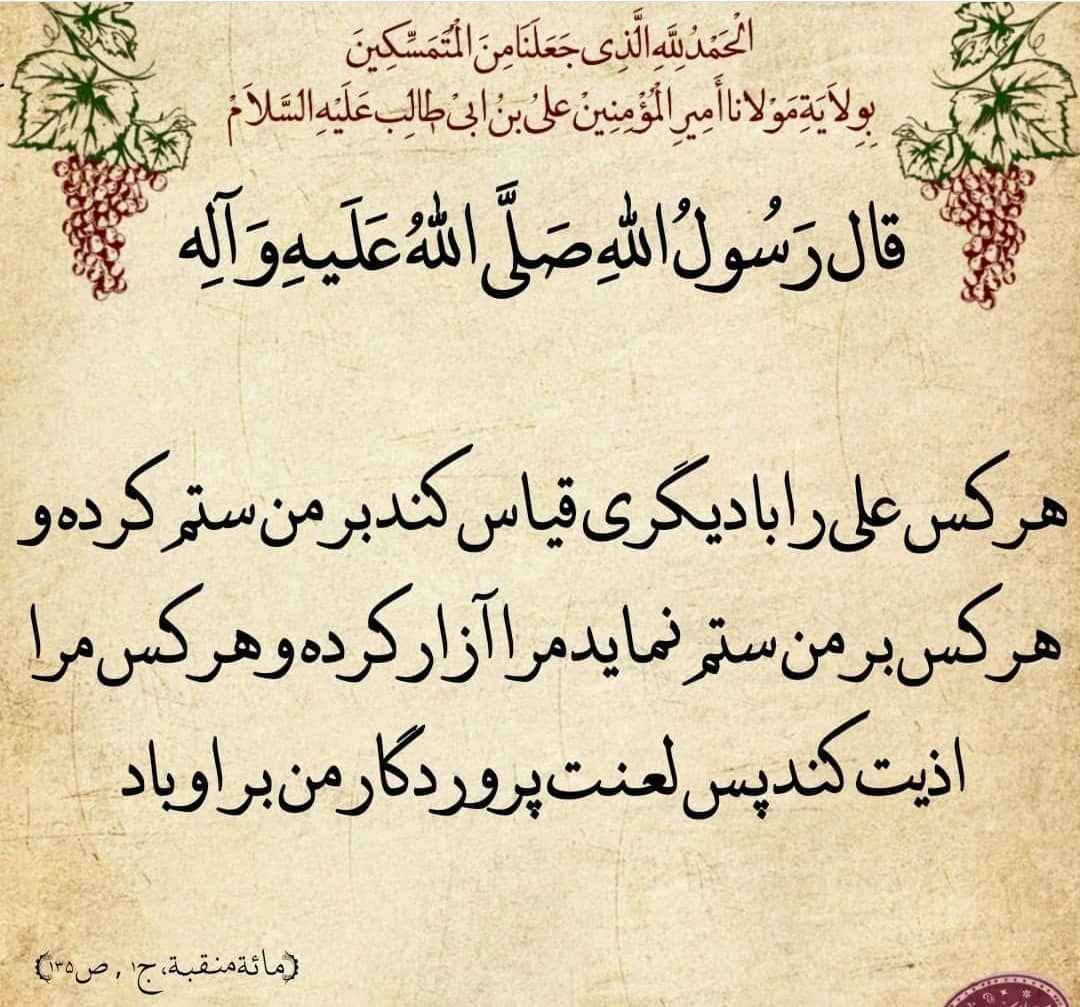 اَلْحَمْدُ لِلَّهِ الَّذِی جَعَلَنَا مِنَ الْمُتَمَسِّکِینَ
بِوِلاَیَةِ مَوْلانا أَمِیرِ الْمُؤْمِنِینْ عَلیُ بنُ ابیْ طالِب عَلَیْهِ السَّلاَمْ
قال رَسُولُ اللهِ صَلَّی اللهُ عَلَیهِ وَ آلِه
هر کس علی را با دیگری قیاس کند بر من ستم کرده و
هر کس بر من ستم نماید مرا آزار کرده و هر کس مرا
اذیت کند پس لعنت پروردگار من بر او باد
﴿مائة منقبة، ج۱ , ص۱۳۵﴾